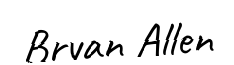 Bryan Allen